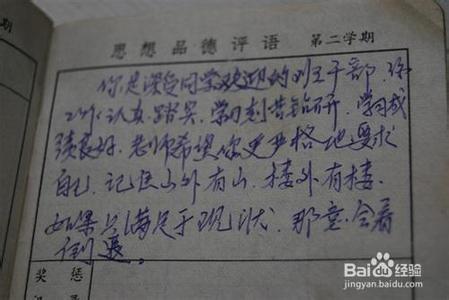 思想品德评语 第二学期
你是深受同学欢迎的 干部,你
工作认真、踏实,学习刻苦钻研,学习成
绩良好。老师希望你更严格地要求
自己,记住山外有山,楼外有楼,
如果只满足于现状,那 会
倒退。
奖惩
Baidu经验
jingyan.baidu.com